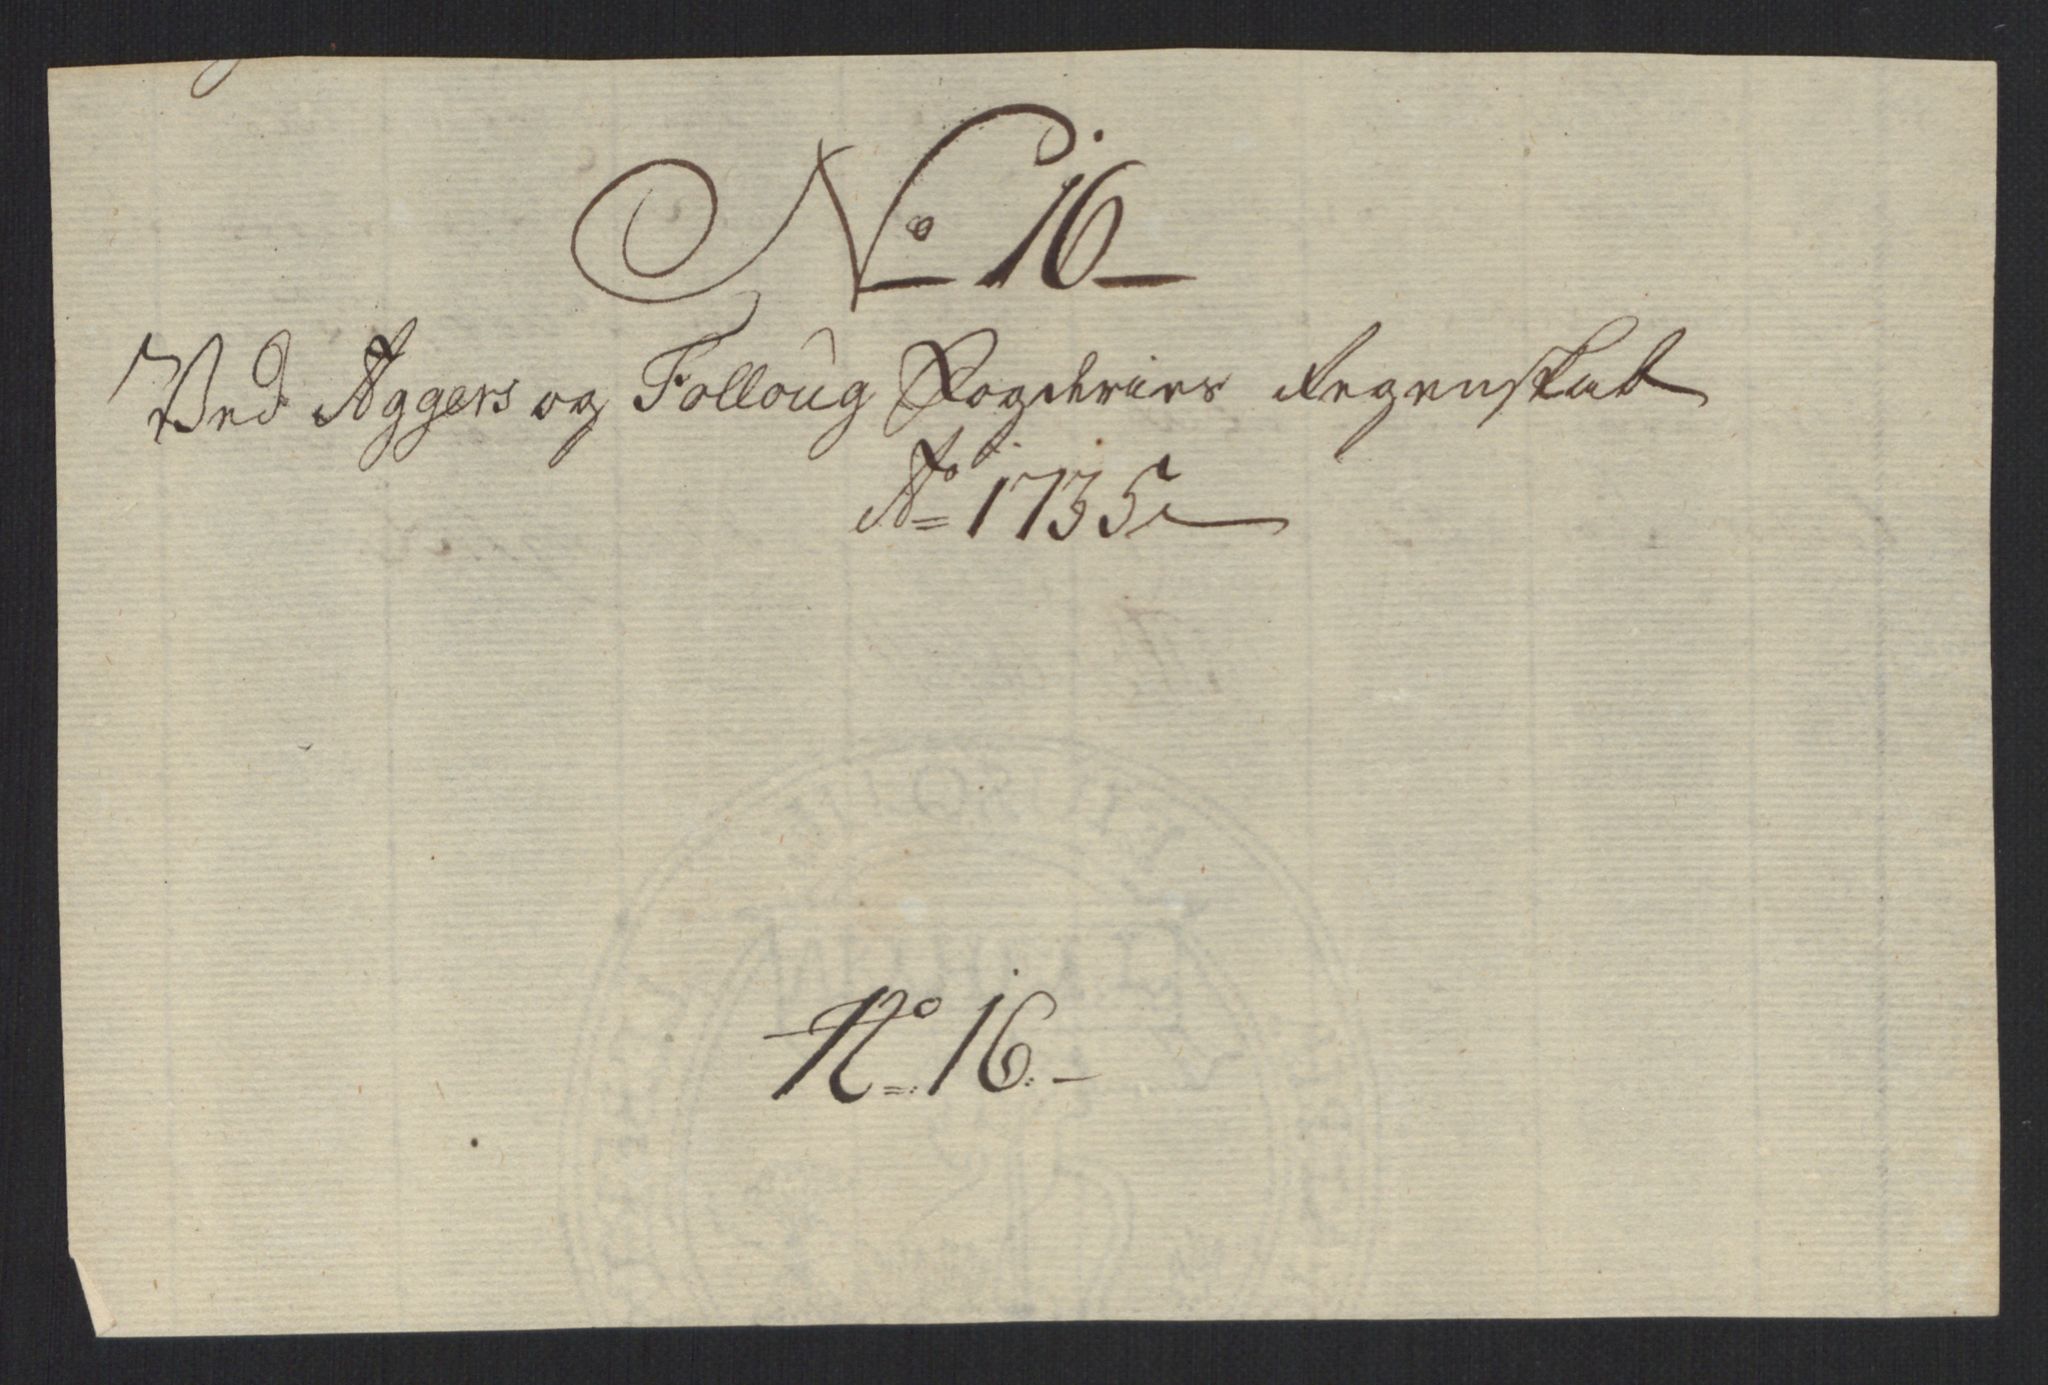 No 16
Ved Aggers og Folloug Fogderies Regenskab
Ao 1735
No 16.